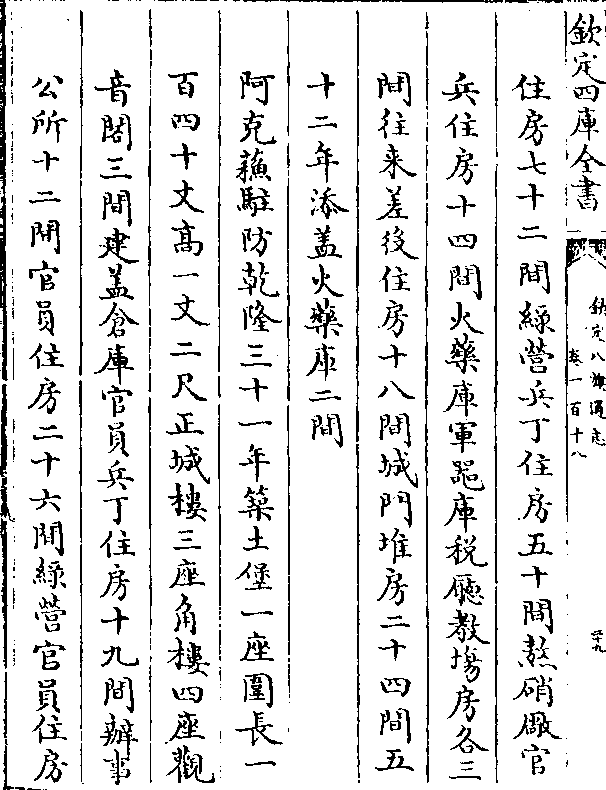 欽定四庫全書
欽定八旗通志
卷一百十八
二十九
住房七十二間綠營兵丁住房五十間熬硝厰官
兵住房十四間火藥庫軍器庫税廳教塲房各三
間往来差役住房十八間城門堆房二十四間五
十二年添盖火藥庫二間
阿克蘓駐防乾隆三十一年築土堡一座圍長一
百四十丈髙一丈二尺正城樓三座角樓四座觀
音閣三間建盖倉庫官員兵丁住房十九間辦事
公所十二間官員住房二十六間綠營官員住房